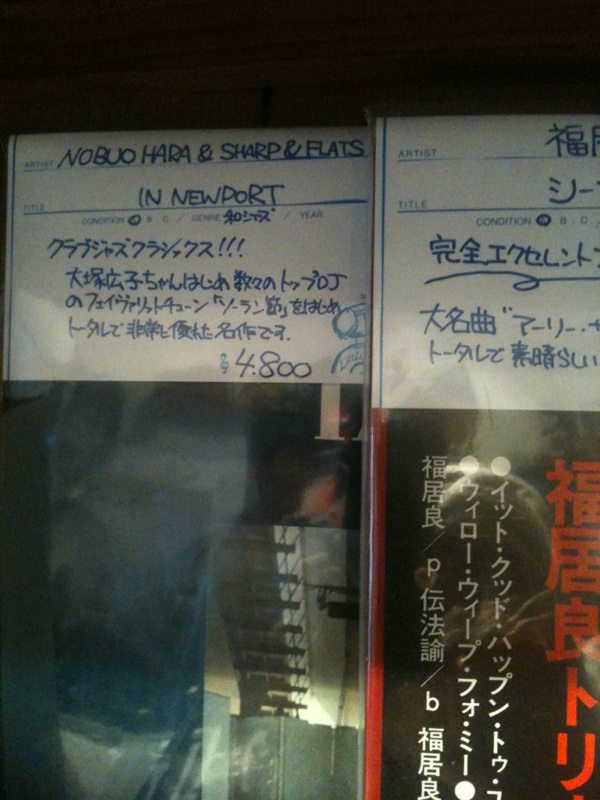 ARTIST NOBUO HARA & SHARP & FLATS
TITLE IN NEWPORT
CONDITION A B. C / GENRE 和ジャズ / YEAR
クラブジャズクラシックス!!!
大塚広子ちゃんはじめ数々のトップDJ
のフェイヴァリットチューン「ソーラン節」をはじめ
トータルで非常に優れた名作です.
4.800
ARTIST 福居
TITLE シー
CONDITION B. C
完全エクセレント
大名曲"アーリー・サ
トータルで素晴らしい
福居良トリ
●イット・クッド・ハップン・トゥ・ユ
●ウィロー・ウィープ・フォ・ミー●
福居良/p 伝法諭/b 福居良